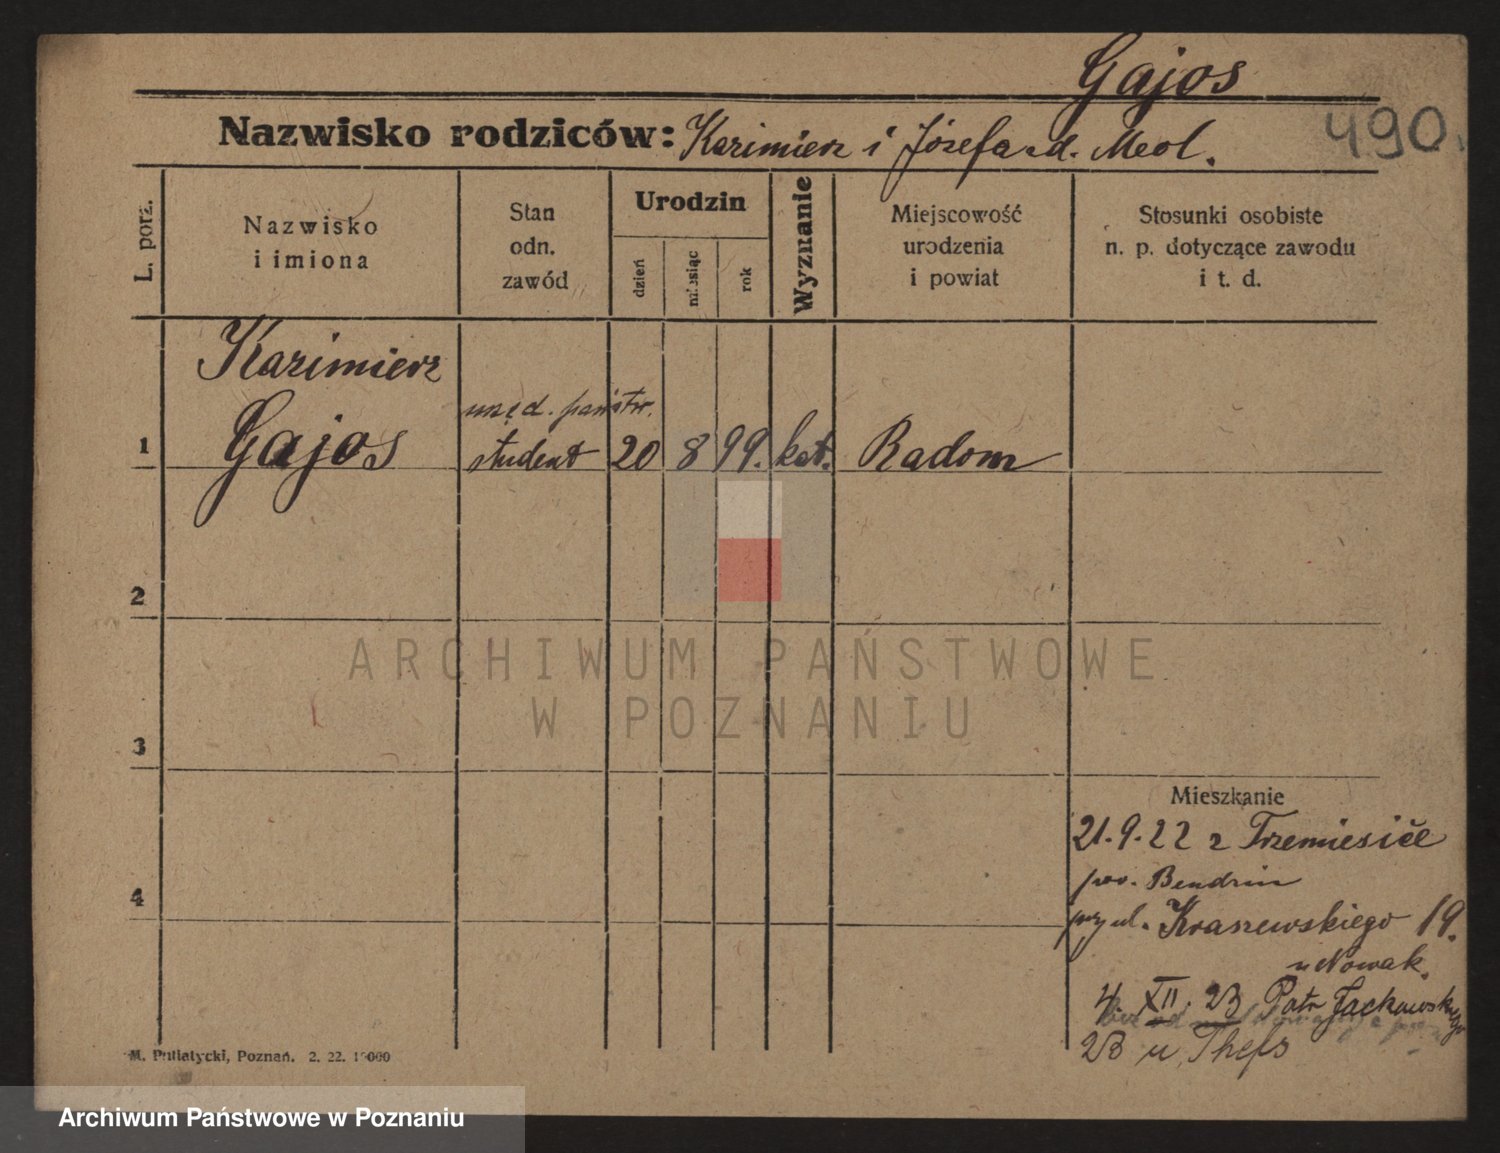 Gajos
490.
Nazwisko rodziców: Kazimierz i Józefa z d. Meol.
L. porz.
Nazwisko
i imiona
Stan
odn.
zawód
Urodzin
dzień
miesiąc
rok
Wyznanie
Miejscowość
urodzenia
i powiat
Stosunki osobiste
n. p. dotyczące zawodu
i t. d.
Kazimierz
urzęd. państw.
1 Gajos student 20 8 99. kat. Radom
2
3
4
ARCHIWUM PAŃSTWOWE
W POZNANIU
Mieszkanie
21.9.22 z
pow. Bendzin
przy ul. Kraszewskiego 19.
u Nowak.
4. XII. 23 Patr Jackowskiego
23 u
M. Putiatycki, Poznań. 2. 22. 10000
Archiwum Państwowe w Poznaniu